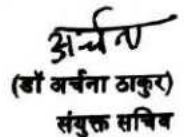 अर्चना
(डॉ अर्चना ठाकुर)
संयुक्त सचिव